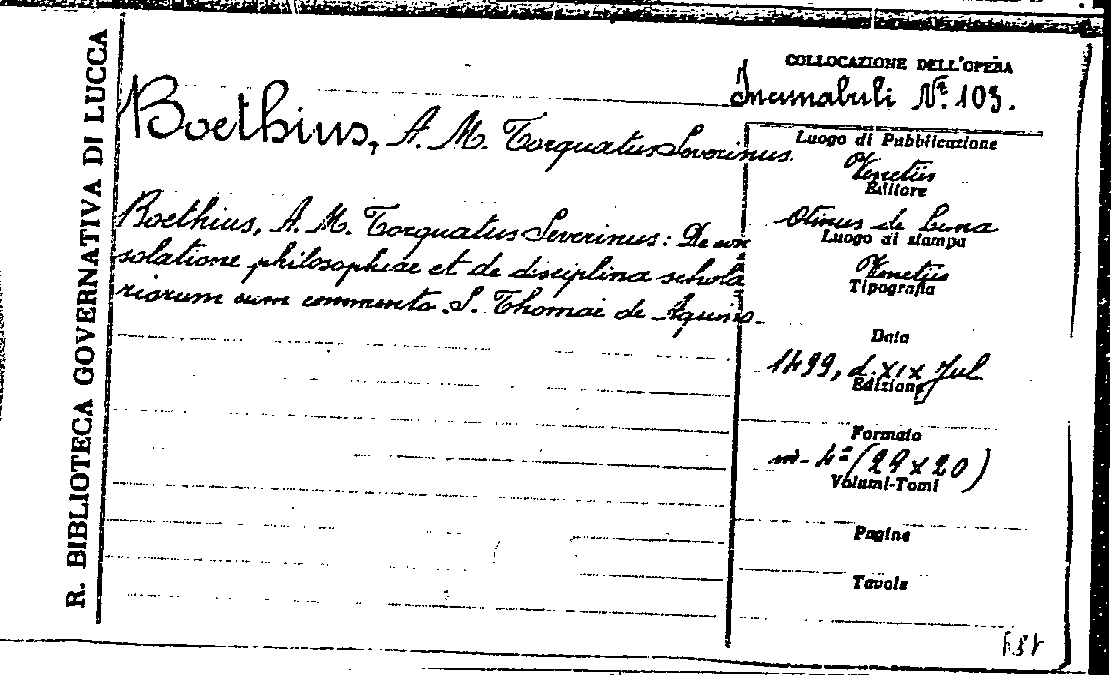 R. BIBLIOTECA GOVERNATIVA DI LUCCA
Boethius, A. M. Torquatus Severinus.
Boethius, A. M. Torquatus Severinus: De con
solatione philosophiae et de disciplina schola
riorum cum commento S. Thomae de Aquino.
COLLOCAZIONE DELL'OPERA
Incunabuli Nº. 103.
Luogo di Pubblicazione
Venetiis
Editore
Otinus de Luna
Luogo di stampa
Venetiis
Tipografia
Data
1499, d. XIX Jul
Edizione
Formato
in-4º (29 x 20)
Volumi-Tomi
Pagine
Tavole